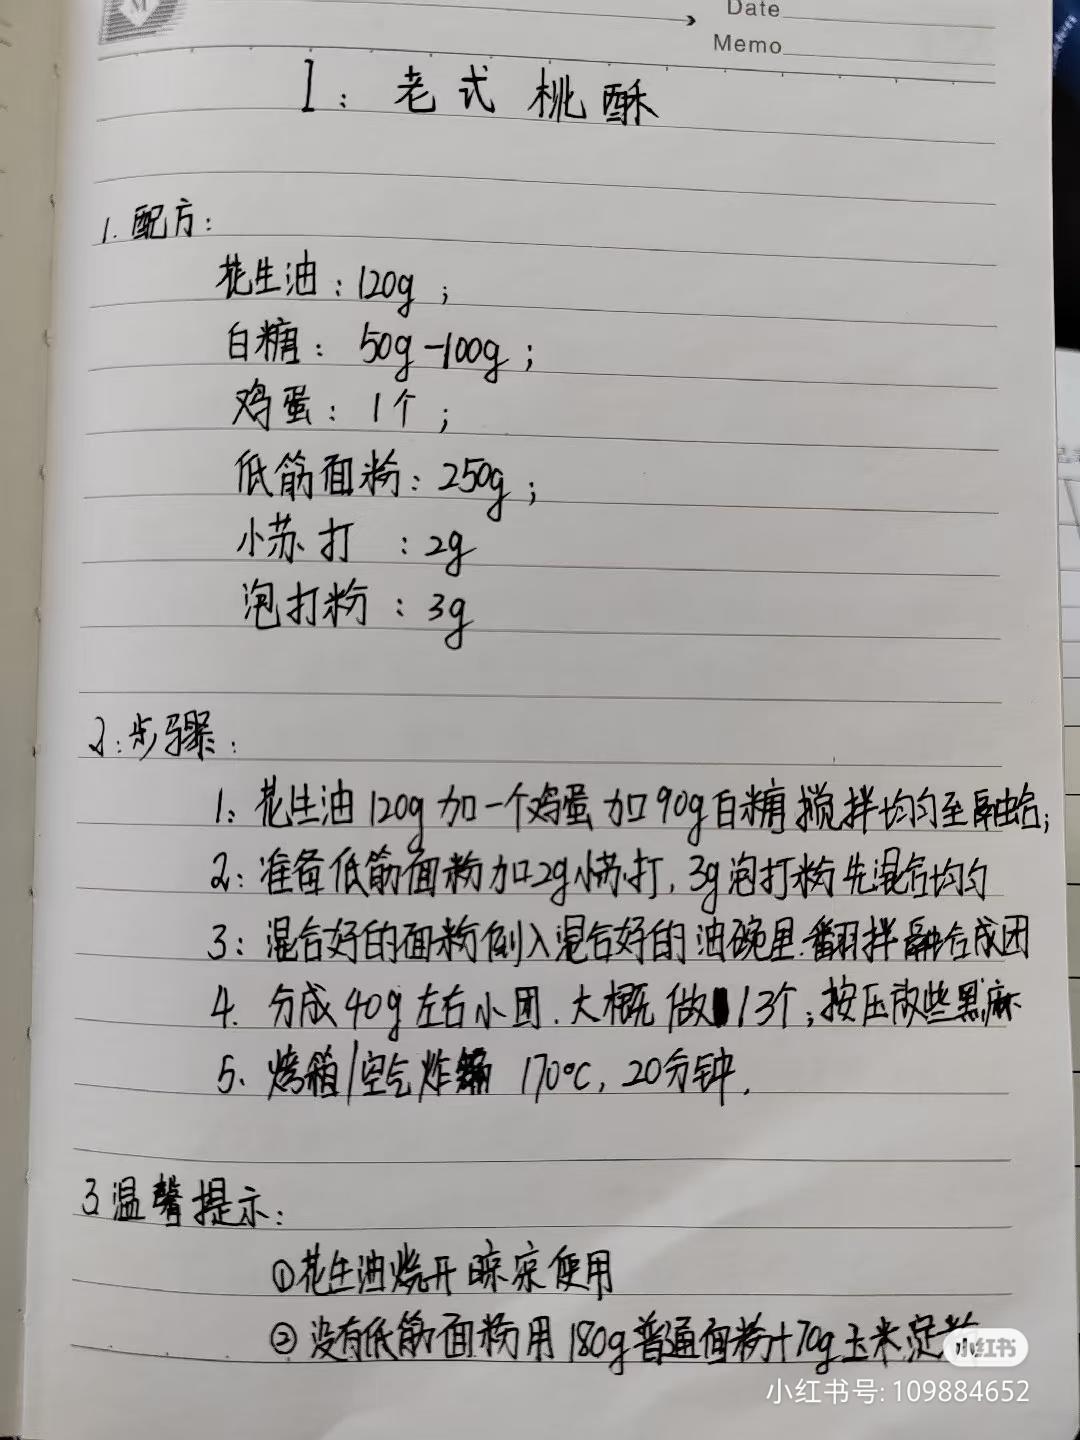 M
Date
Memo
I：老式桃酥
1.配方：
花生油：120g；
白糖：50g-100g；
鸡蛋：1个；
低筋面粉：250g；
小苏打：2g
泡打粉：3g
2:步骤：
1：花生油120g加一个鸡蛋加90g白糖搅拌均匀至融合；
2：准备低筋面粉加2g小苏打，3g泡打粉先混合均匀
3：混合好的面粉倒入混合好的油碗里.翻拌融合成团
4.分成40g左右小团.大概做13个；按压放些黑麻
5、烤箱/空气炸锅 170℃，20分钟.
3温馨提示：
①花生油烧开晾凉使用
②没有低筋面粉用180g普通面粉+70g玉米淀
小红书
小红书号: 109884652